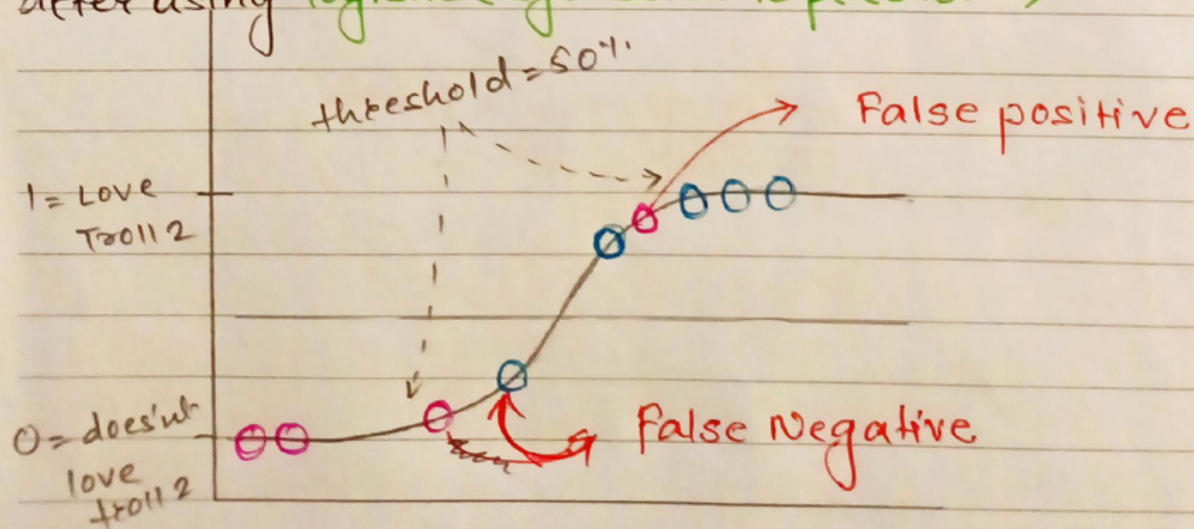 after using
threshold = 50%
False positive
1 = Love
Troll 2
0 = does'nt
love
troll 2
False Negative